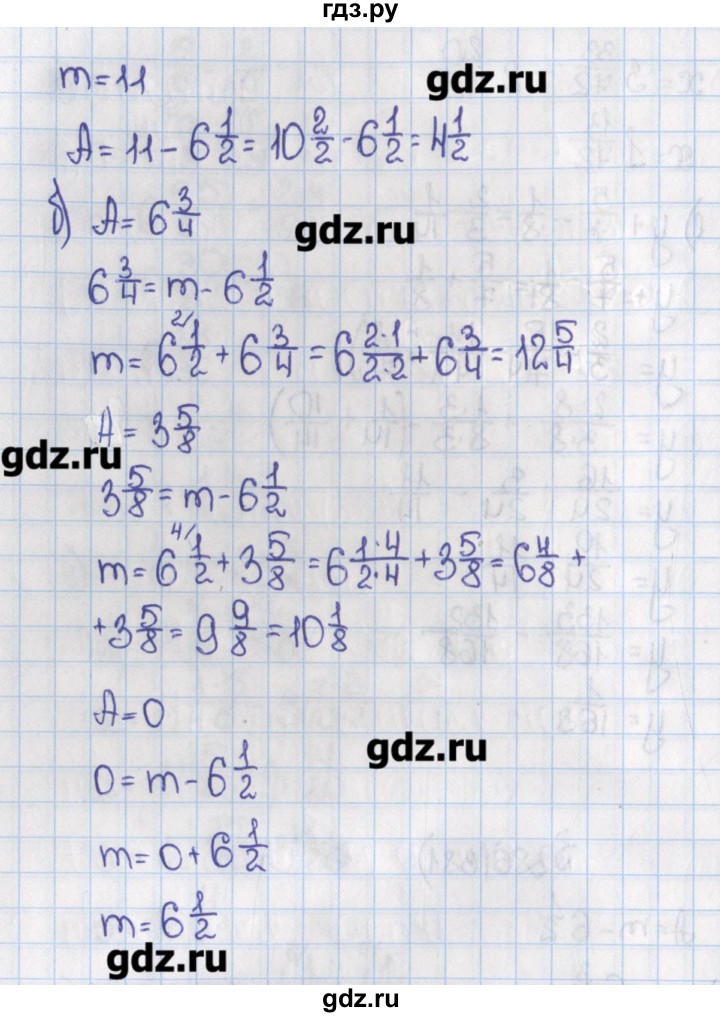 гдз.ру
gdz.ru
m = 11
A = 11 - 6 1/2 = 10 2/2 - 6 1/2 = 4 1/2
gdz.ru
б) A = 6 3/4
6 3/4 = m - 6 1/2
m = 6 1/2 + 6 3/4 = 6 2·1/2·2 + 6 3/4 = 12 5/4
A = 3 5/8
gdz.ru
3 5/8 = m - 6 1/2
m = 6 1/2 + 3 5/8 = 6 1·4/2·4 + 3 5/8 = 6 4/8 +
+ 3 5/8 = 9 9/8 = 10 1/8
A = 0
gdz.ru
0 = m - 6 1/2
m = 0 + 6 1/2
m = 6 1/2
gdz.ru
gdz.ru